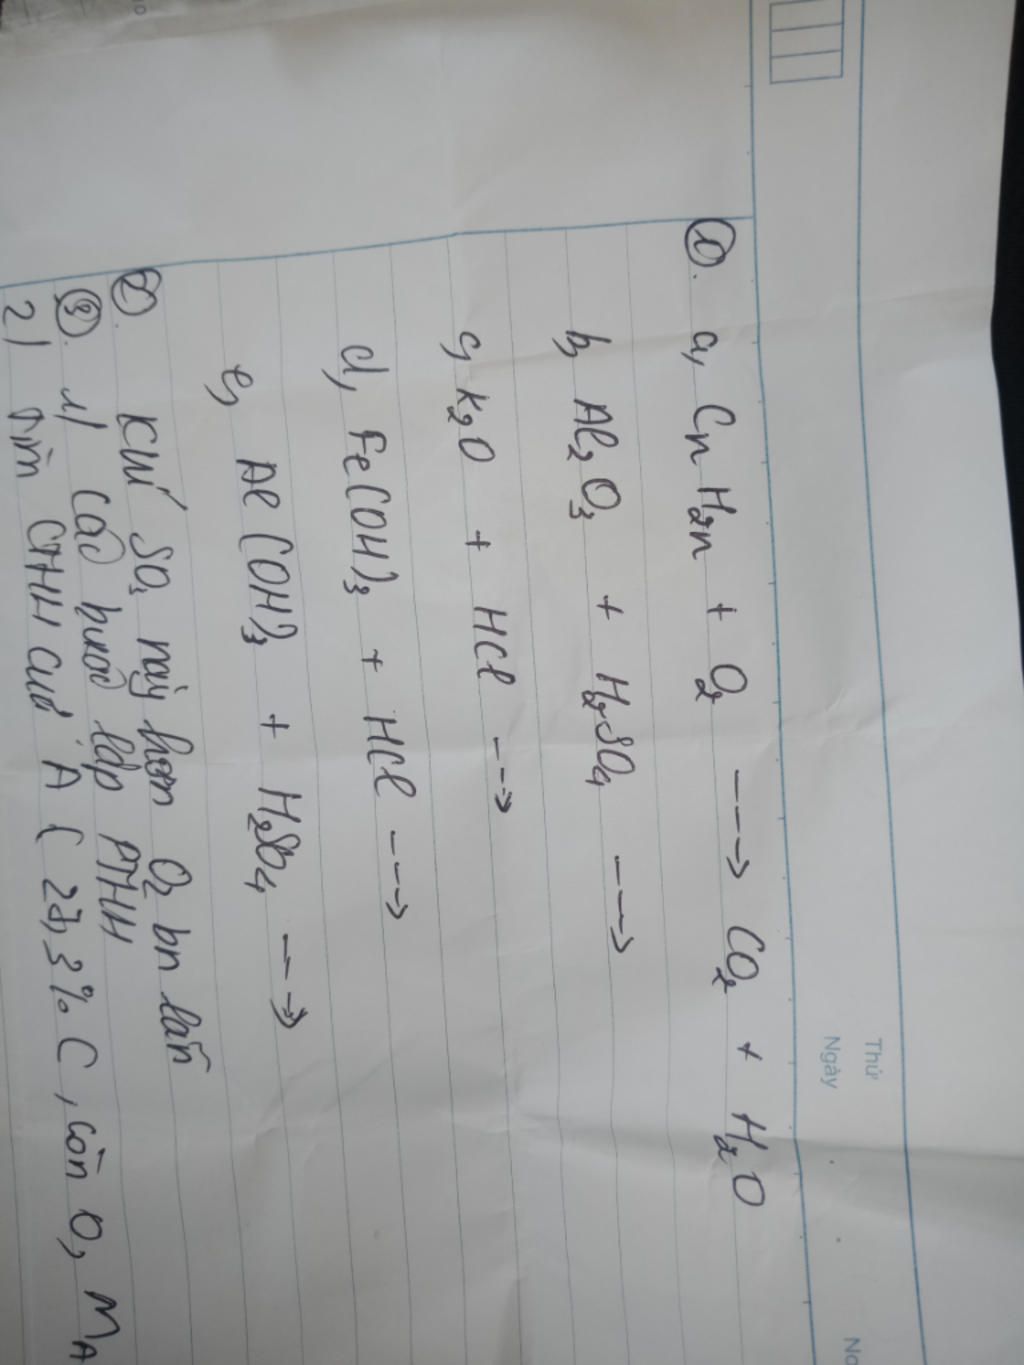 Thứ
Ngày
No
①. a, CnH2n + O2 ---> CO2 + H2O
b, Al2O3 + H2SO4 --->
c, K2O + HCl --->
d, Fe(OH)3 + HCl --->
e, Al(OH)3 + H2SO4 --->
②. Khí SO3 nặng hơn O2 bn lần
③. 1) Các bước lập PTHH
2) Tìm CTHH của A ( 27,3% C, còn O, MA